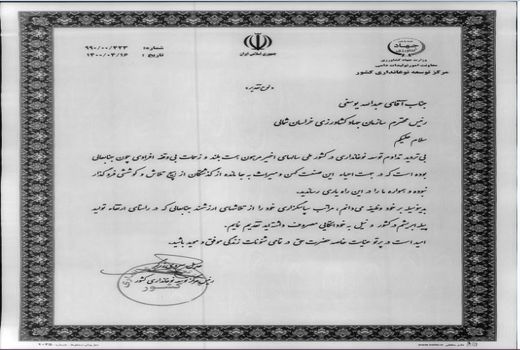 شماره: ۹۹۰/۰۰/۲۲۳
تاریخ: ۱۴۰۰/۰۴/۱۶
جمهوری اسلامی ایران
جهاد
وزارت جهاد کشاورزی
معاونت امور تولیدات دامی
مرکز توسعه نوغانداری کشور
«لوح تقدیر»
جناب آقای عبداله یوسفی
رئیس محترم سازمان جهاد کشاورزی خراسان شمالی
سلام علیکم
بی تردید تداوم توسعه نوغانداری در کشور طی سالهای اخیر مرهون همت بلند و زحمات بی وقفه افرادی چون جنابعالی
بوده است که در جهت احیاء این صنعت کهن و میراث به جا مانده از گذشتگان از هیچ تلاش و کوشش فروگذار
نبوده و همواره ما را در این راه یاری رساندید.
بدینوسیله بر خود وظیفه می دانم، مراتب سپاسگزاری خود را از تلاشهای ارزشمند جنابعالی که در راستای ارتقاء تولید
پیله ابریشم در کشور و نیل به خوداتکایی مصروف داشته اید تقدیم نمایم.
امید است در پرتو عنایات خاصه حضرت حق در تمامی شئونات زندگی موفق و موید باشید.
رئیس مرکز توسعه نوغانداری کشور